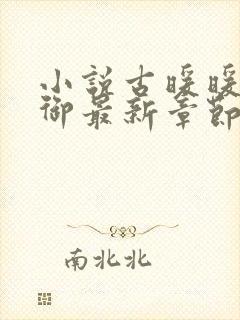 小說古暖暖
御最新章節
南北北